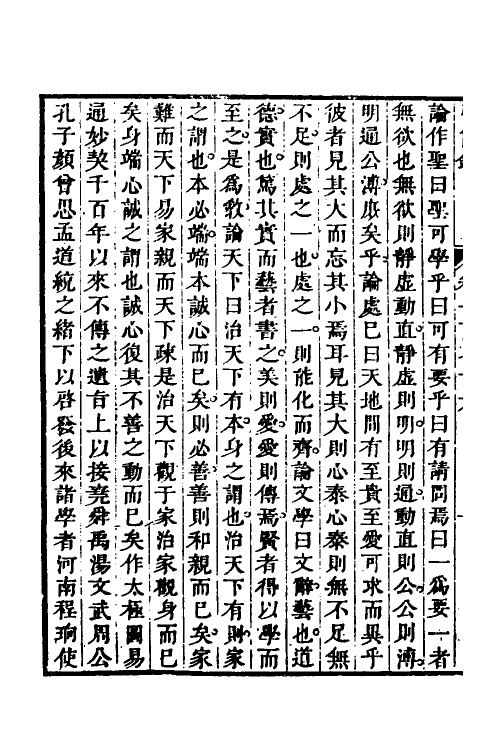 論作聖曰聖可學乎曰可有要乎曰有請問焉曰一爲要一者
無欲也無欲則靜虛動直靜虛則明明則通動直則公公則溥
明通公溥庶矣乎論處巳曰天地間有至貴至愛可求而異乎
彼者見其大而忘其小焉耳見其大則心泰心泰則無不足無
不足則處之一也處之一則能化而齊論文學曰文辭藝也道
德實也篤其實而藝者書之美則愛愛則傳焉賢者得以學而
至之是爲敎論天下曰治天下有本身之謂也治天下有則家
之謂也本必端端本誠心而巳矣則必善善則和親而巳矣家
難而天下易家親而天下疎是治天下觀于家治家觀身而巳
矣身端心誠之謂也誠心復其不善之動而巳矣作太極圖易
通妙契千百年以來不傳之遺旨上以接堯舜禹湯文武周公
孔子顏曾思孟道統之緒下以啓發後來諸學者河南程珦使